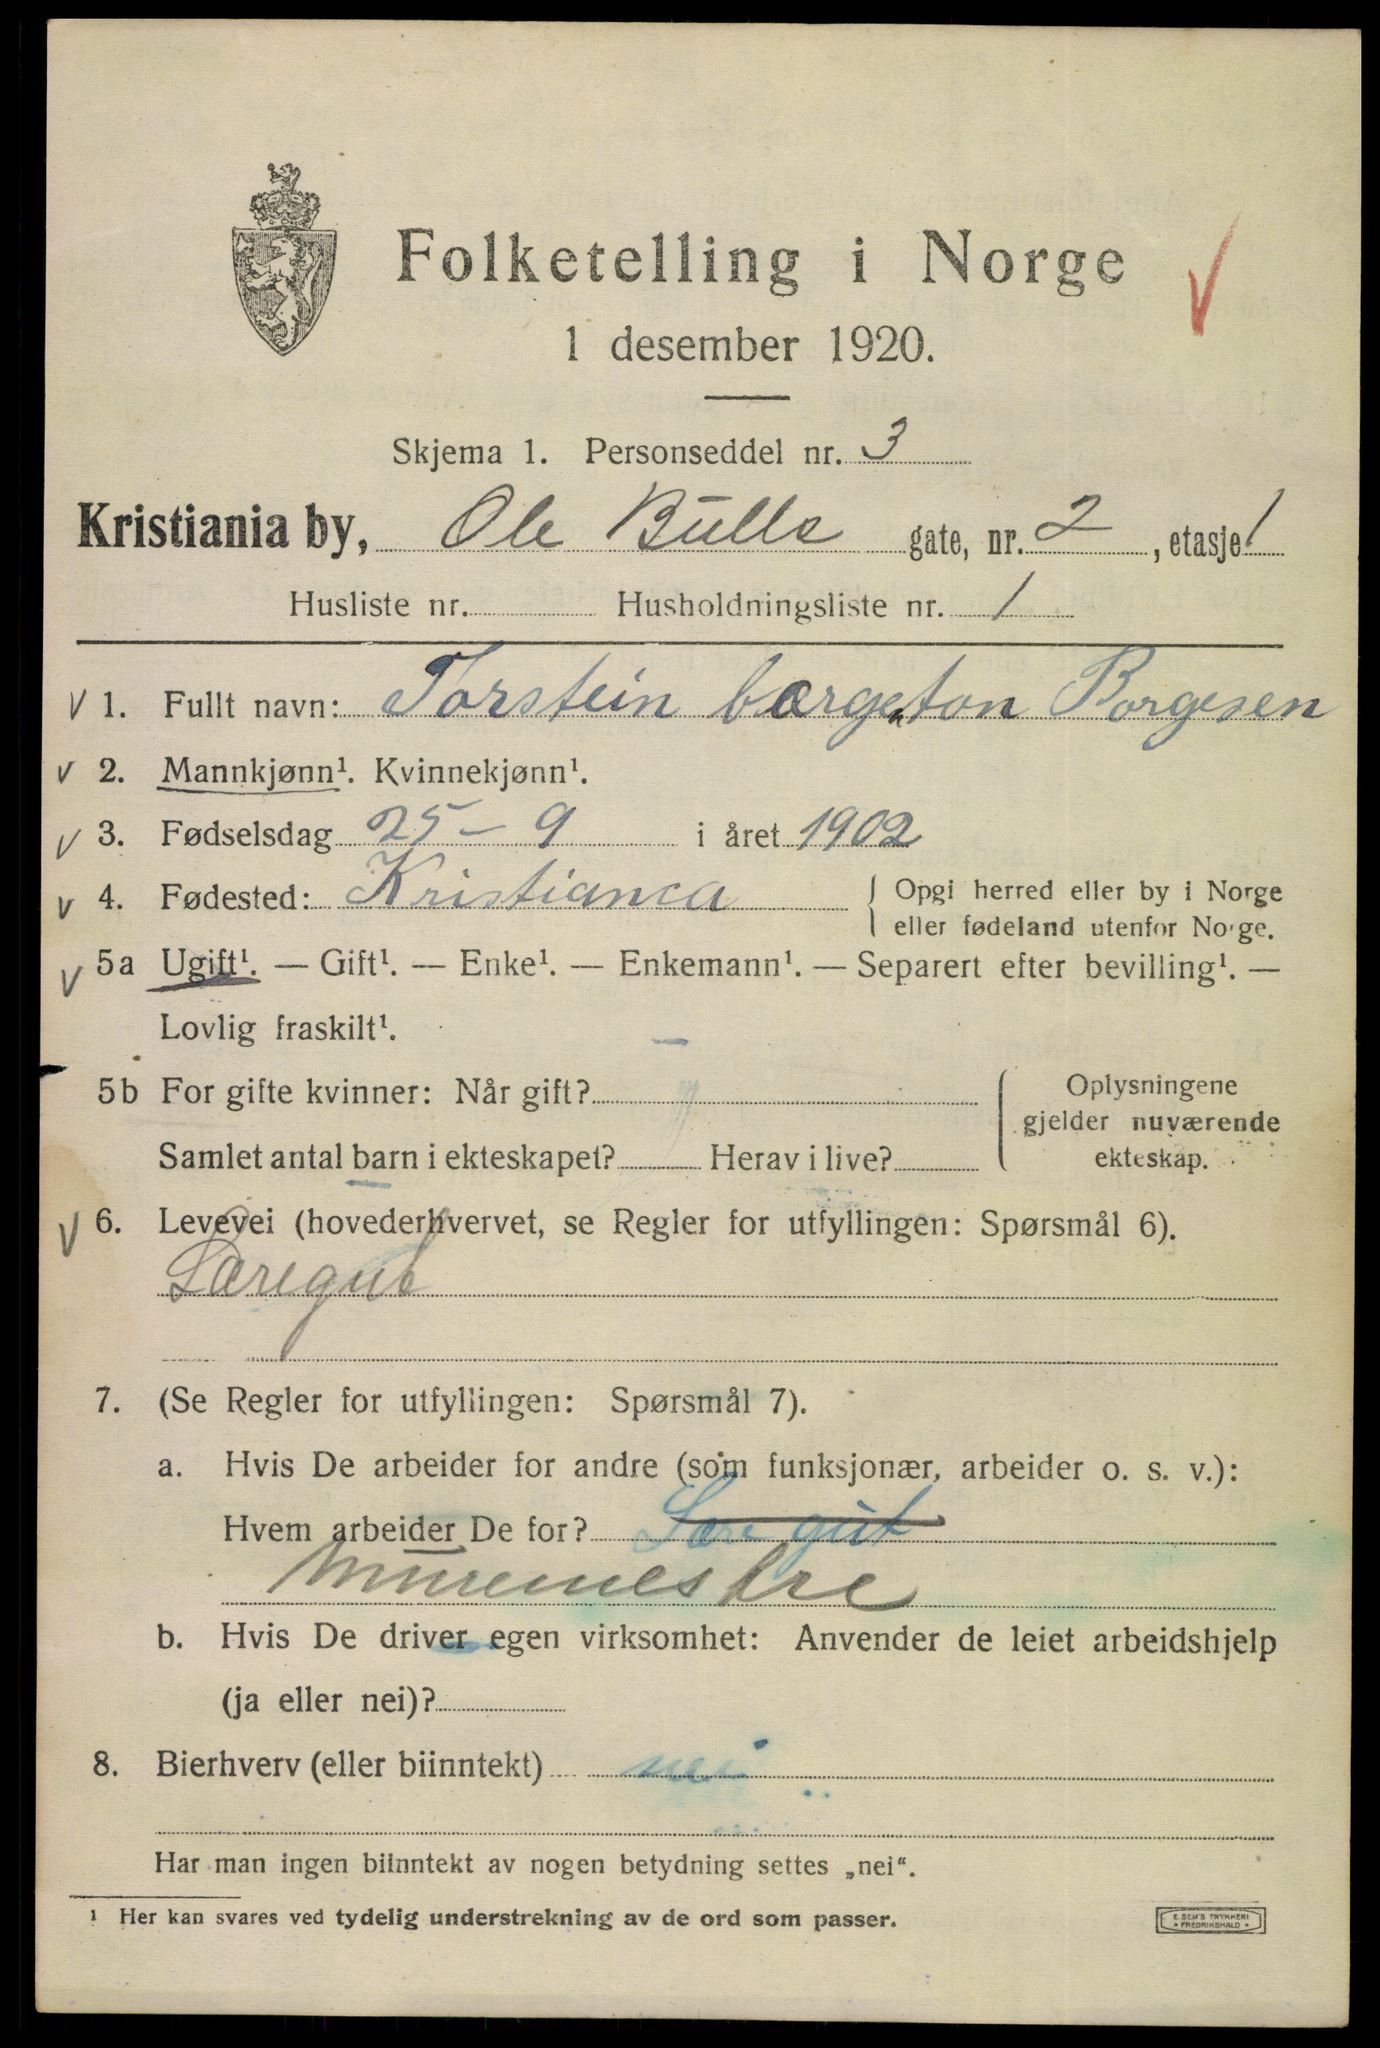 Folketelling i Norge
1 desember 1920.
Skjema 1. Personseddel nr. 3
Kristiania by, Ole Bulls gate, nr. 2, etasje 1
Husliste nr. Husholdningsliste nr. 1
V 1. Fullt navn: Torstein Borgesen
V 2. Mannkjønn¹. Kvinnekjønn¹.
V 3. Fødselsdag 25-9 i året 1902
V 4. Fødested: Kristiania { Opgi herred eller by i Norge
eller fødeland utenfor Norge.
V 5a Ugift¹. — Gift¹. — Enke¹. — Enkemann¹. — Separert efter bevilling¹. —
Lovlig fraskilt¹.
5b For gifte kvinner: Når gift? { Oplysningene
gjelder nuværende
Samlet antal barn i ekteskapet? Herav i live? ekteskap.
V 6. Levevei (hovederhvervet, se Regler for utfyllingen: Spørsmål 6).
Læregut
7. (Se Regler for utfyllingen: Spørsmål 7).
a. Hvis De arbeider for andre (som funksjonær, arbeider o. s. v.):
Hvem arbeider De for? Lære gut
Muremestre
b. Hvis De driver egen virksomhet: Anvender de leiet arbeidshjelp
(ja eller nei)?
8. Bierhverv (eller biinntekt) nei
Har man ingen biinntekt av nogen betydning settes „nei“.
¹ Her kan svares ved tydelig understrekning av de ord som passer.
E. SEM'S TRYKKERI
FREDRIKSHALD